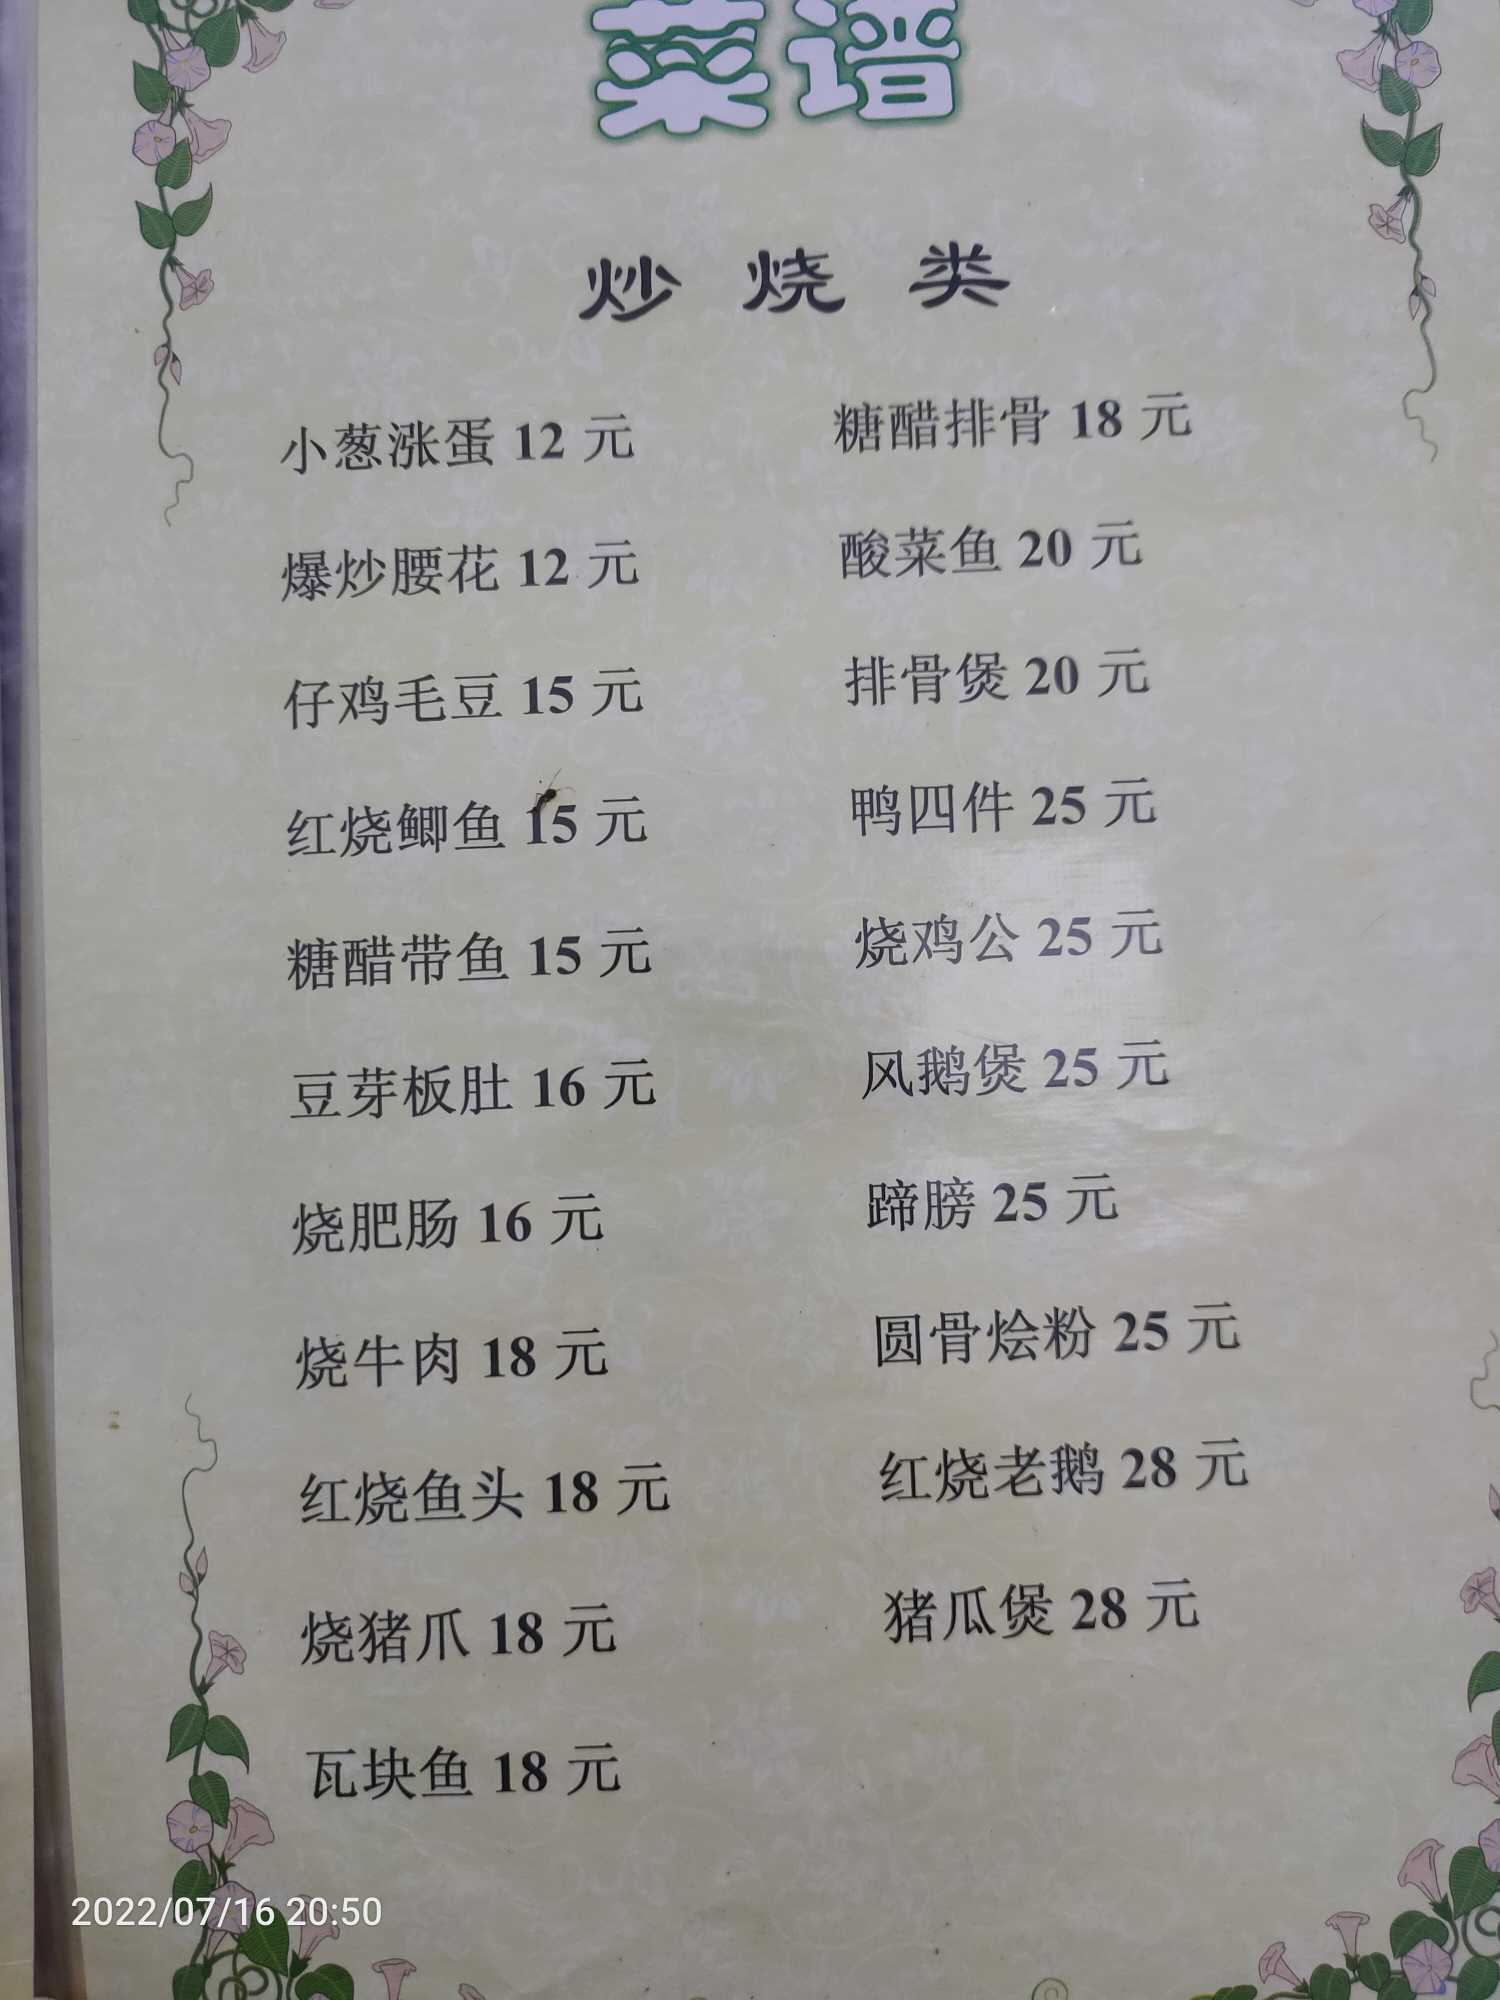 菜谱
炒烧类
小葱涨蛋 12 元
爆炒腰花 12 元
仔鸡毛豆 15 元
红烧鲫鱼 15 元
糖醋带鱼 15 元
豆芽板肚 16 元
烧肥肠 16 元
烧牛肉 18 元
红烧鱼头 18 元
烧猪爪 18 元
瓦块鱼 18 元
糖醋排骨 18 元
酸菜鱼 20 元
排骨煲 20 元
鸭四件 25 元
烧鸡公 25 元
风鹅煲 25 元
蹄膀 25 元
圆骨烩粉 25 元
红烧老鹅 28 元
猪瓜煲 28 元
2022/07/16 20:50